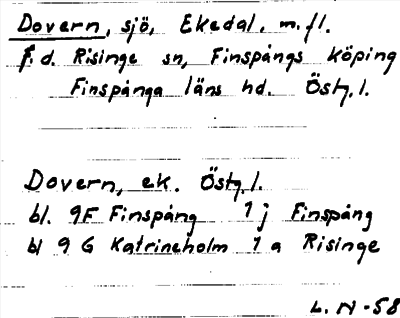 Dovern, sjö, Ekedal. m.fl.
f.d. Risinge sn, Finspångs köping
Finspånga läns hd. Östg.l.
Dovern, ek. Östg.l.
bl. 9F Finspång 1 j Finspång
bl 9 G Katrineholm 1 a Risinge
L. N -58